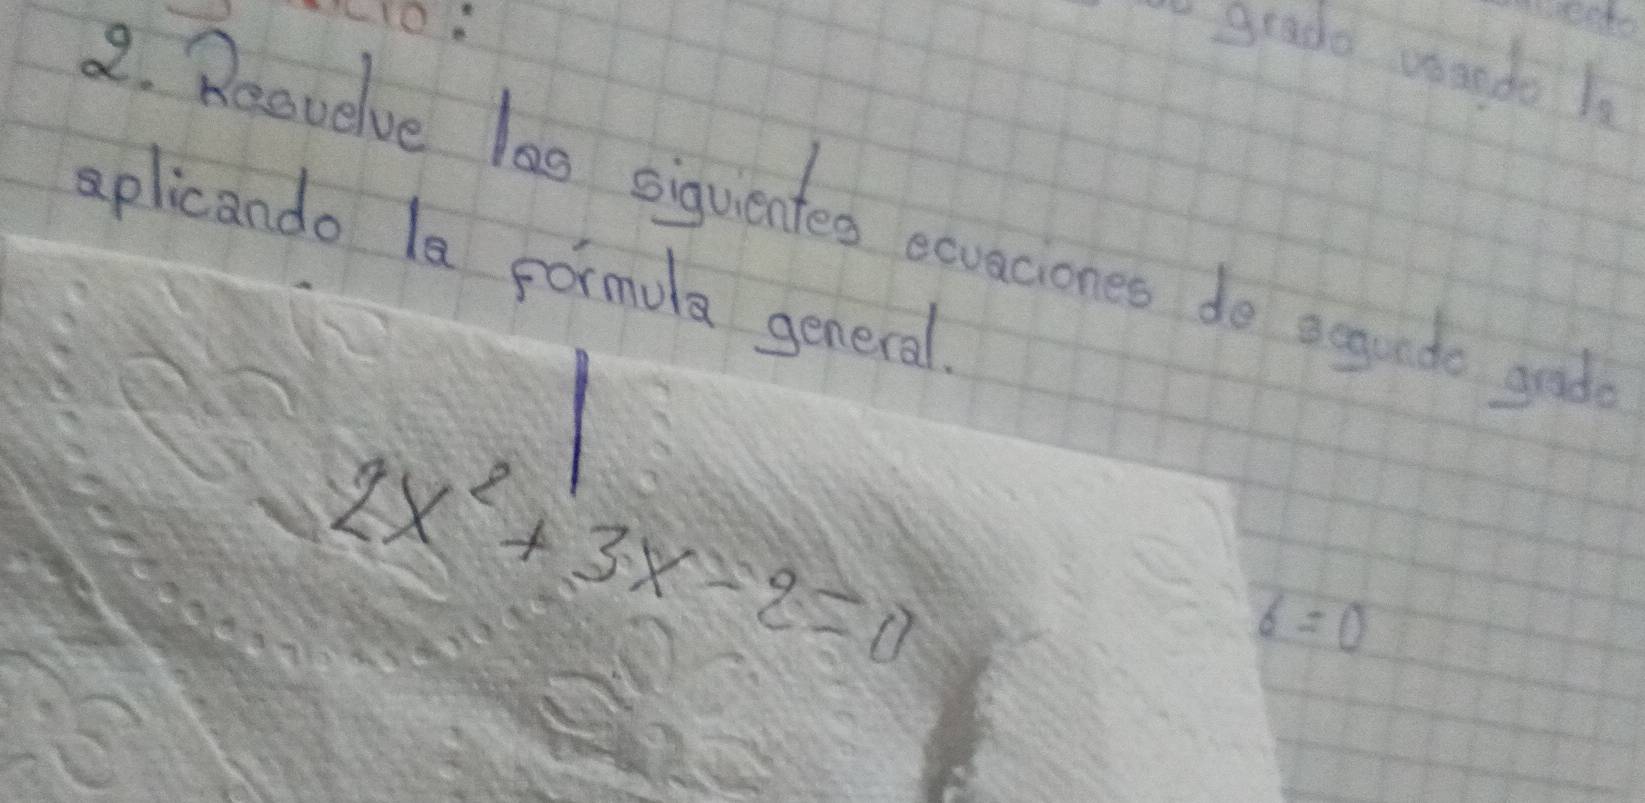 grado usando la
2. Resuelve las siguientes ecuaciones de segundo grado
aplicando la fórmula general.
2x² + 3x - 2 = 0
6 = 0